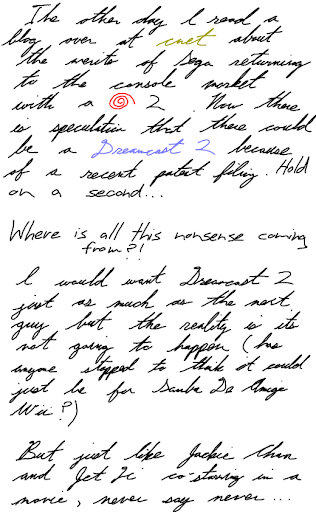 The other day I read a
blog over at cnet about
the merits of Sega returning
to the console market
with a 2. Now there
is speculation that there could
be a Dreamcast 2 because
of a recent patent filing. Hold
on a second...
Where is all this nonsense coming
from?!
I would want Dreamcast 2
just as much as the next
guy but the reality is its
not going to happen (has
anyone stopped to think it could
just be for Samba De Amigo
Wii?)
But just like Jackie Chan
and Jet Li co-starring in a
movie, never say never...